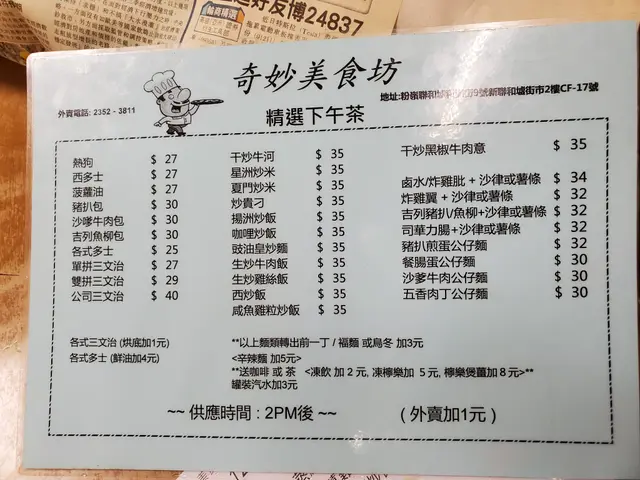 好友博24837
奇妙美食坊
外賣電話: 2352 - 3811
地址:粉嶺聯和墟
9號新聯和墟街市2樓CF-17號
精選下午茶
熱狗 $ 27
西多士 $ 27
菠蘿油 $ 27
豬扒包 $ 30
沙嗲牛肉包 $ 30
吉列魚柳包 $ 30
各式多士 $ 25
單拼三文治 $ 27
雙拼三文治 $ 29
公司三文治 $ 40
干炒牛河 $ 35
星洲炒米 $ 35
夏門炒米 $ 35
炒貴刁 $ 35
揚洲炒飯 $ 35
咖哩炒飯 $ 35
豉油皇炒麵 $ 35
生炒牛肉飯 $ 35
生炒雞絲飯 $ 35
西炒飯 $ 35
咸魚雞粒炒飯 $ 35
干炒黑椒牛肉意 $ 35
鹵水/炸雞肶 + 沙律或薯條 $ 34
炸雞翼 + 沙律或薯條 $ 32
吉列豬扒/魚柳+沙律或薯條 $ 32
司華力腸+沙律或薯條 $ 32
豬扒煎蛋公仔麵 $ 32
餐腸蛋公仔麵 $ 30
沙爹牛肉公仔麵 $ 30
五香肉丁公仔麵 $ 30
各式三文治 (烘底加1元)
各式多士 (鮮油加4元)
**以上麵類轉出前一丁 / 福麵 或烏冬 加3元
<辛辣麵 加5元>
**送咖啡 或 茶 <凍飲 加 2 元, 凍檸樂加 5 元, 檸樂煲薑加 8 元>**
罐裝汽水加3元
~~ 供應時間 : 2PM後 ~~ ( 外賣加1元 )